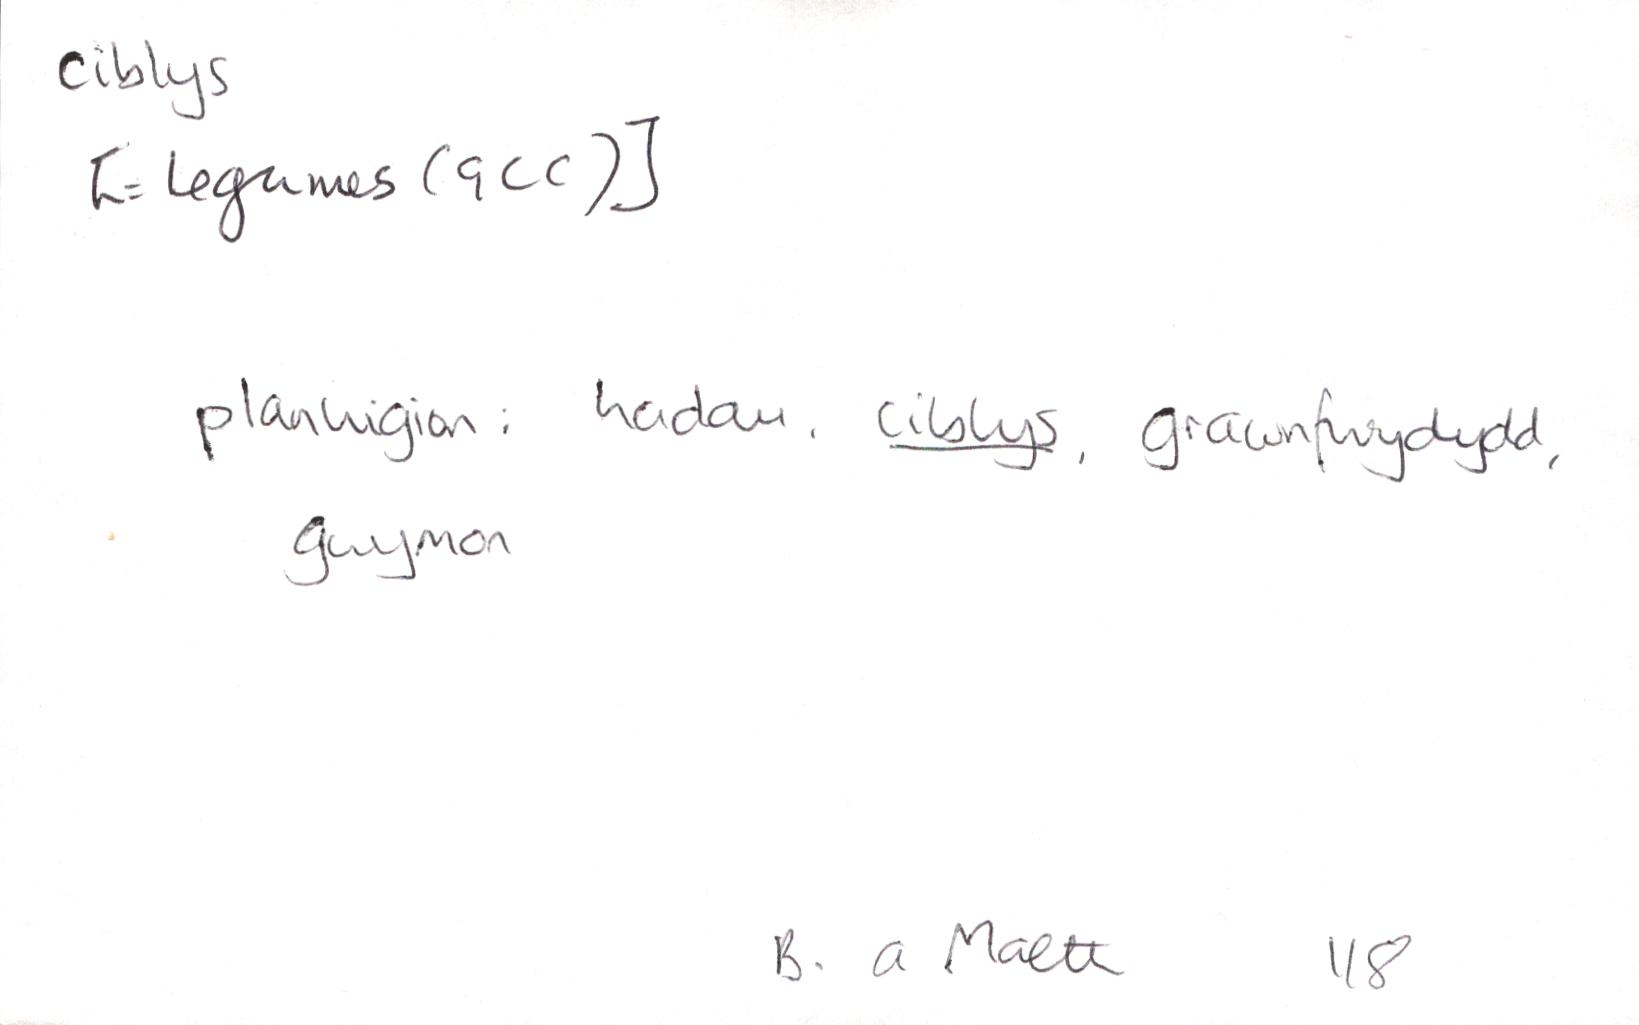 ciblys
[= legumes (gcc)]
planhigion: hadau, ciblys, grawnfwydydd,
gwymon
B. a Maeth 118